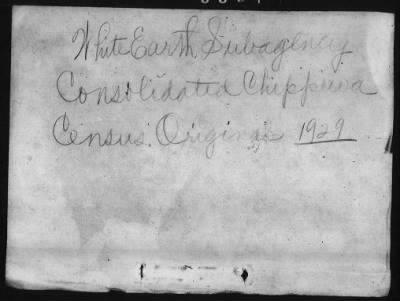 White Earth Subagency
Consolidated Chippewa
Census. Original 1929